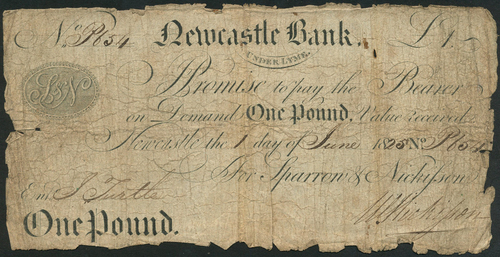 No. P654 Newcastle Bank. £1
UNDER LYME.
S&N
I Promise to pay the Bearer
on Demand One Pound, Value received.
Newcastle the 1 day of June 1825 No. P654
For Sparrow & Nickisson
Ent. J. Tuttle
One Pound.